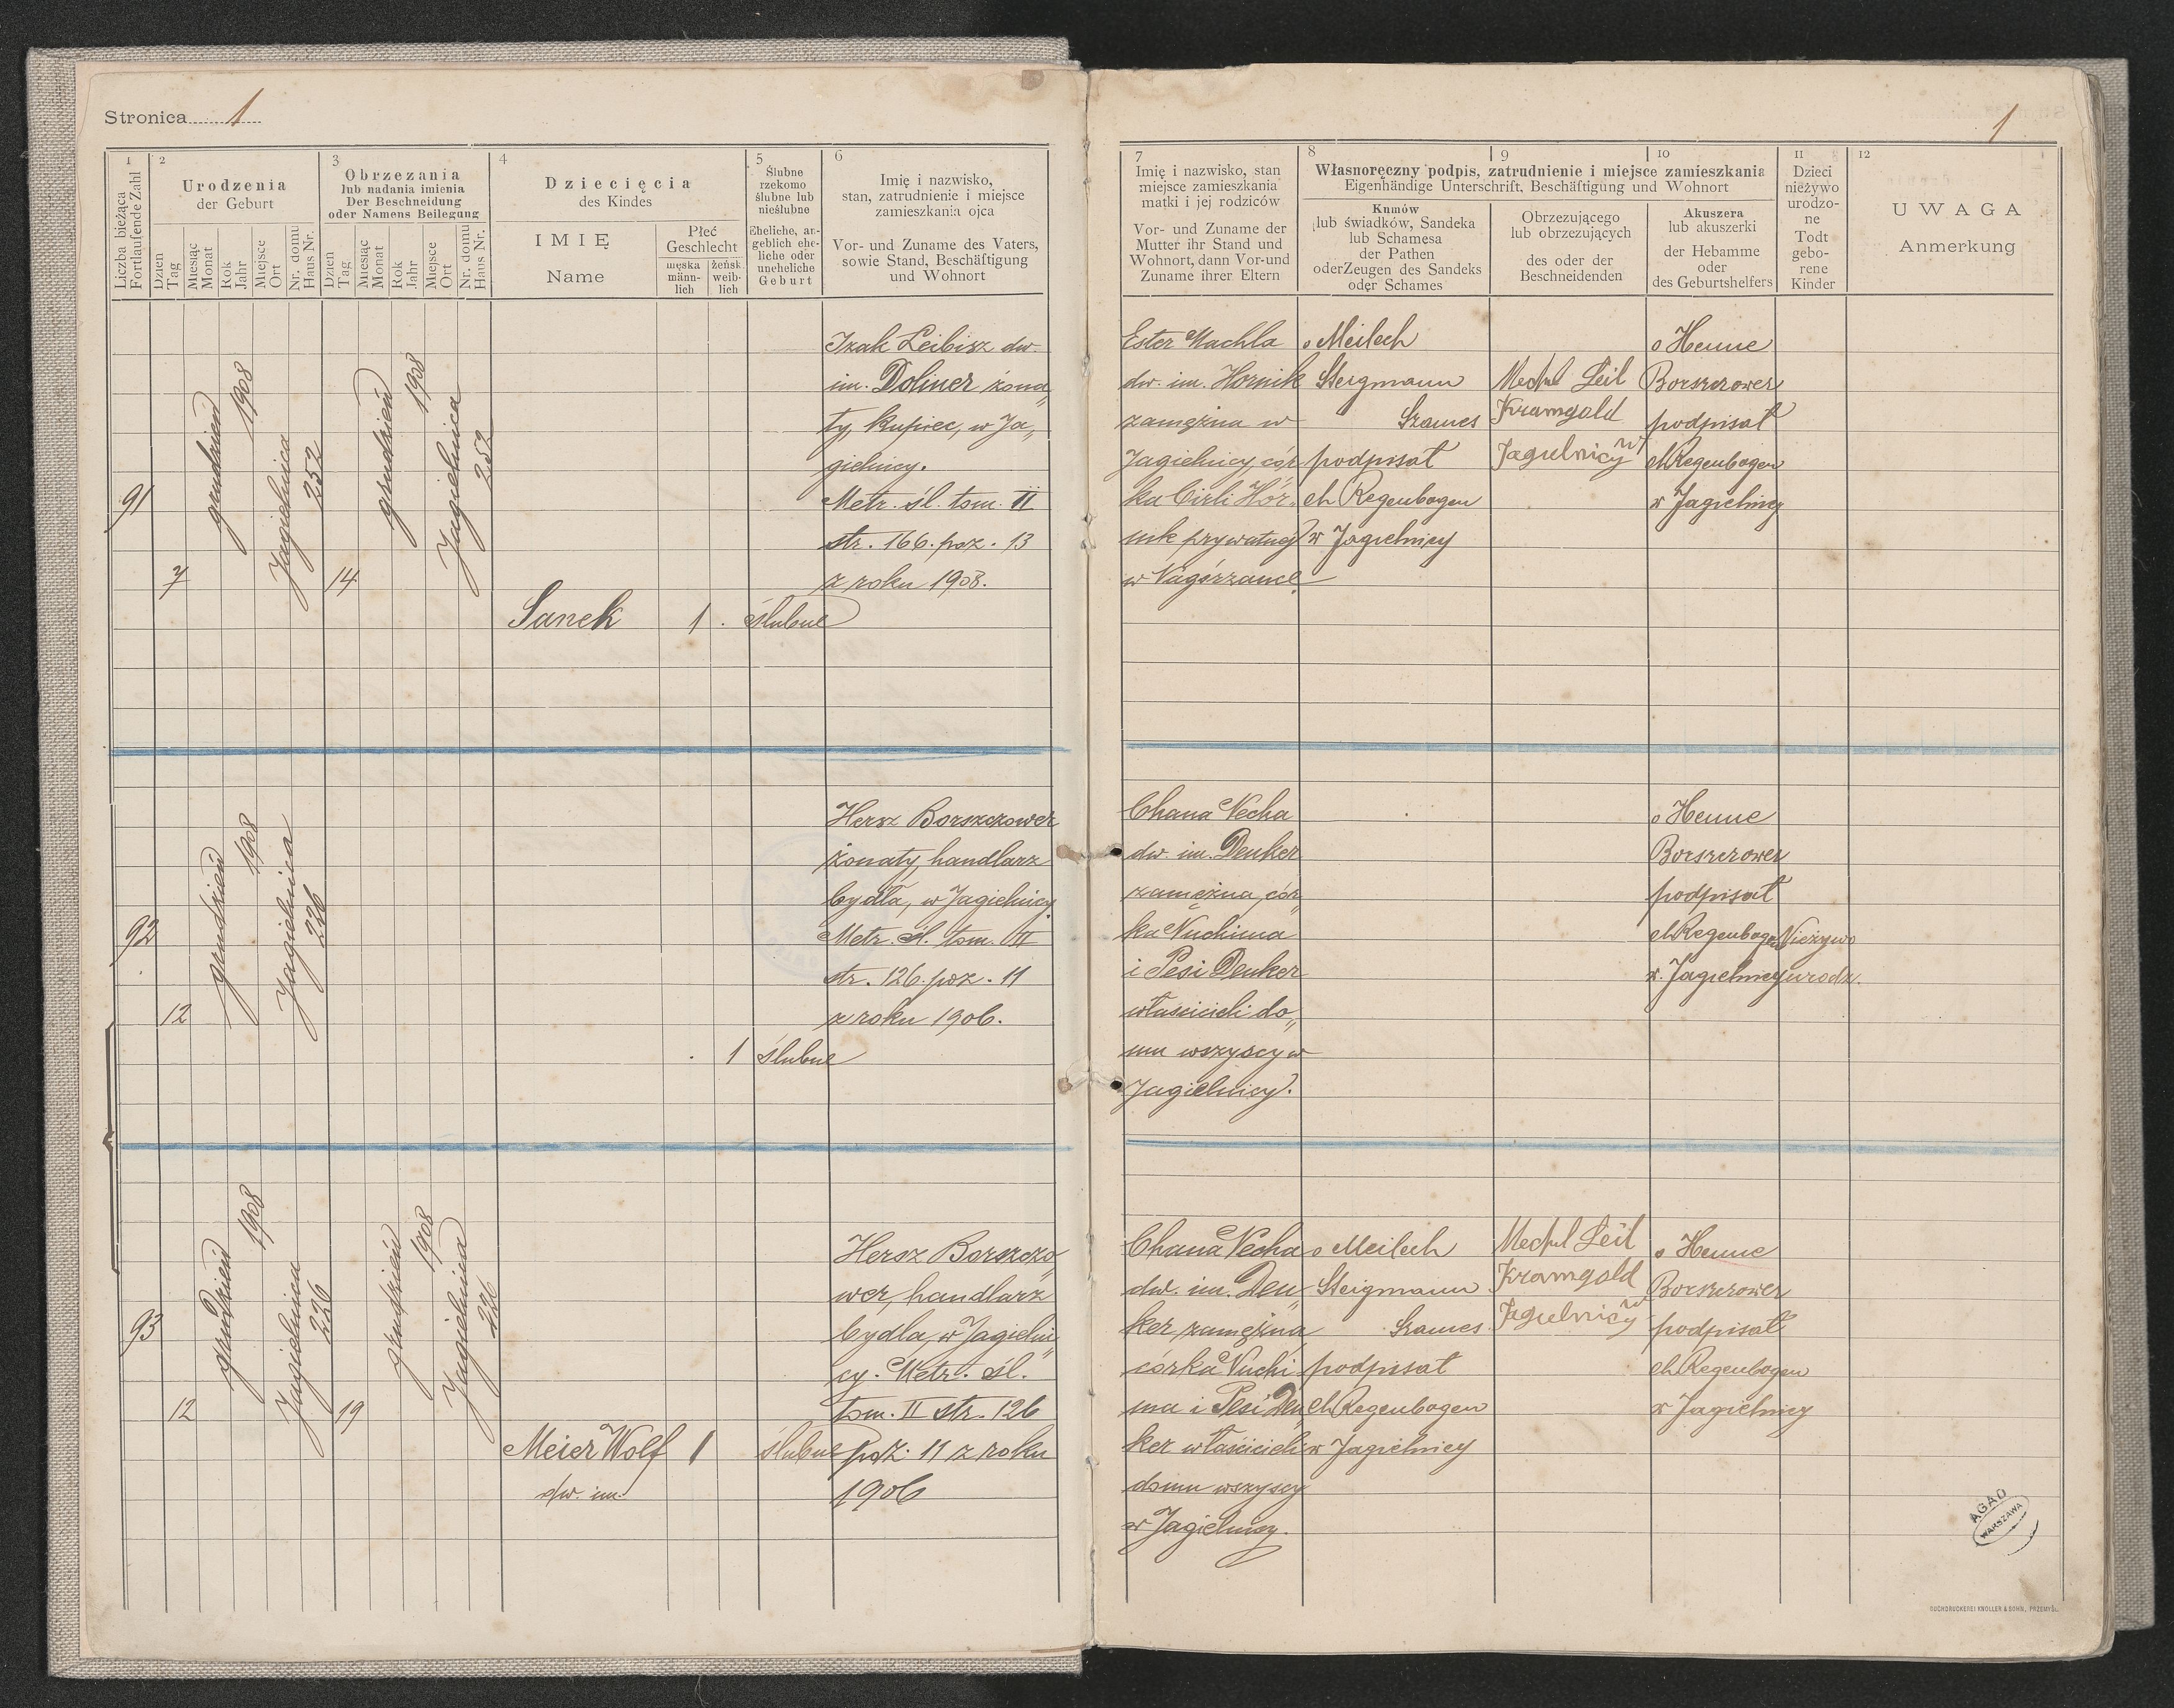 Stronica 1
1
1
Liczba bieżąca
Fortlaufende Zahl
2
Urodzenia
der Geburt
Dzień
Tag
Miesiąc
Monat
Rok
Jahr
Miejsce
Ort
Nr. domu
Haus Nr.
3
Obrzezania
lub nadania imienia
Der Beschneidung
oder Namens Beilegung
Dzień
Tag
Miesiąc
Monat
Rok
Jahr
Miejsce
Ort
Nr. domu
Haus Nr.
4
Dziecięcia
des Kindes
IMIĘ
Name
Płeć
Geschlecht
męska
männ-
lich
żeńsk.
weib-
lich
5
Ślubne
rzekomo
ślubne lub
nieślubne
Eheliche, an-
geblich ehe-
liche oder
uneheliche
Geburt
6
Imię i nazwisko,
stan, zatrudnienie i miejsce
zamieszkania ojca
Vor- und Zuname des Vaters,
sowie Stand, Beschäftigung
und Wohnort
7
Imię i nazwisko, stan
miejsce zamieszkania
matki i jej rodziców
Vor- und Zuname der
Mutter ihr Stand und
Wohnort, dann Vor-und
Zuname ihrer Eltern
8
9
10
Własnoręczny podpis, zatrudnienie i miejsce zamieszkania
Eigenhändige Unterschrift, Beschäftigung und Wohnort
Kumów
lub świadków, Sandeka
lub Schamesa
der Pathen
oder Zeugen des Sandeks
oder Schames
Obrzezującego
lub obrzezujących
des oder der
Beschneidenden
Akuszera
lub akuszerki
der Hebamme
oder
des Geburtshelfers
11
Dzieci
nieżywo
urodzo-
ne
Todt
gebo-
rene
Kinder
12
UWAGA
Anmerkung
91
7
grudzień
1908
Jagielnica
252
14
grudzień
1908
Jagielnica
252
Sanek
1 .
ślubne
Izak Leibisz dw.
im. Doliner żona„
ty, kupiec, w Ja„
gielnicy.
Metr. śl. tom. II
str. 166. poz. 13
z roku 1908.
Ester Machla
dw. im. Hornik
zamężna w
Jagielnicy, cór
ka Cirli Hor„
nik prywatnej
w Nagórzance
o Meilech
Steigmann
Szames
podpisał
ch Regenbogen
w Jagielnicy
Mechel Leib
Kramgold
w
Jagielnicy
o Henne
Borszczower
podpisał
ch Regenbogen
w Jagielnicy
92
12
grudzień
1908
Jagielnica
226
. 1
ślubne
Hersz Borszczower
żonaty, handlarz
bydła, w Jagielnicy
Metr. śl. tom. II
str. 126. poz. 11
z roku 1906.
Chana Necha
dw. im. Denker
zamężna, cór„
ka Nuchima
i Pesi Denker
właścicieli do„
mu wszyscy w
Jagielnicy.
o Henne
Borszczower
podpisał
ch Regenbogen
w. Jagielnicy
Nieżywo
urodz.
93
12
grudzień
1908
Jagielnica
226
19
grudzień
1908
Jagielnica
226
Meier Wolf
dw. im.
1
ślubne
Hersz Borszczo„
wer, handlarz
bydła, w Jagielni„
cy. Metr. śl.
tom. II str. 126
poz. 11 z roku
1906
Chana Necha
dw. im. Den„
ker, zamężna
córka Nuchi
ma i Pesi Den„
ker właścicieli
domu wszyscy
w Jagielnicy.
o Meilech
Steigmann
Szames
podpisał
ch Regenbogen
w Jagielnicy
Mechel Leib
Kramgold
w
Jagielnicy
o Henne
Borszczower
podpisał
ch Regenbogen
w Jagielnicy
AGAD
WARSZAWA
BUCHDRUCKEREI KNOLLER & SOHN, PRZEMYŚL.